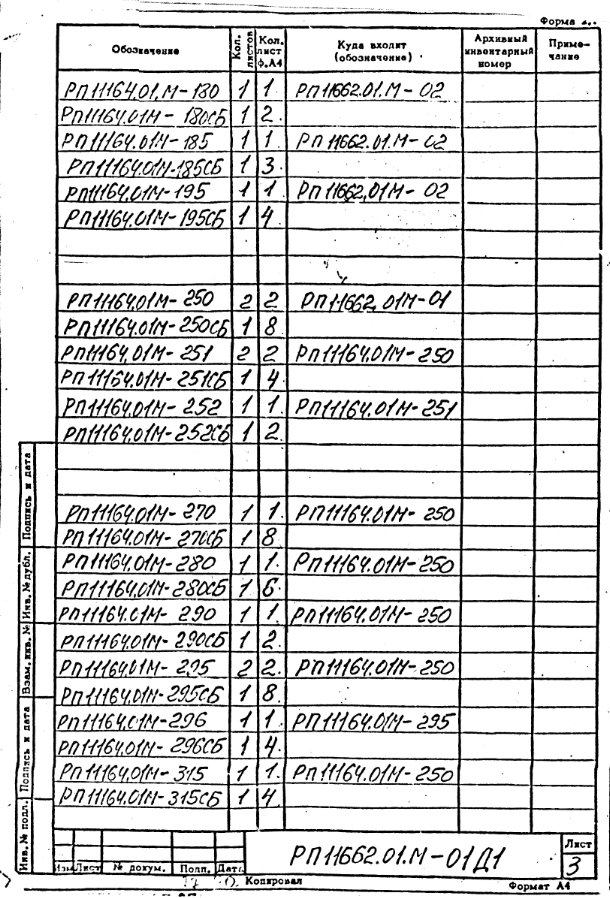 Форма
Обозначение Кол. листов Кол. лист ф.А4 Куда входит (обозначение) Архивный инвентарный номер Примечание
РП11164.01.М-180 1 1 РП11662.01.М-02
РП11164.01М-180СБ 1 2
РП11164.01М-185 1 1 РП11662.01.М-02
РП11164.01М-185СБ 1 3
РП11164.01М-195 1 1 РП11662.01М-02
РП11164.01М-195СБ 1 4
РП11164.01М-250 2 2 РП11662.01М-01
РП11164.01М-250СБ 1 8
РП11164.01М-251 2 2 РП11164.01М-250
РП11164.01М-251СБ 1 4
РП11164.01М-252 1 1 РП11164.01М-251
РП11164.01М-252СБ 1 2
РП11164.01М-270 1 1 РП11164.01М-250
РП11164.01М-270СБ 1 8
РП11164.01М-280 1 1 РП11164.01М-250
РП11164.01М-280СБ 1 6
РП11164.01М-290 1 1 РП11164.01М-250
РП11164.01М-290СБ 1 2
РП11164.01М-295 2 2 РП11164.01М-250
РП11164.01М-295СБ 1 8
РП11164.01М-296 1 1 РП11164.01М-295
РП11164.01М-296СБ 1 4
РП11164.01М-315 1 1 РП11164.01М-250
РП11164.01М-315СБ 1 4
Инв. № подл. Подпись и дата Взам. инв. № Инв. № дубл. Подпись и дата
РП11662.01.М-01Д1
Лист
3
Изм Лист № докум. Подп. Дата
Копировал
Формат А4